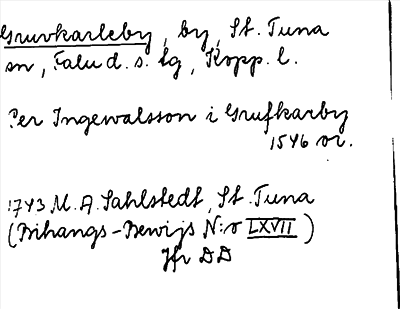 Gruvkarleby, by, St. Tuna
sn, Falu d. s. tg, Kopp. l.
Per Ingewalsson i Grufkarby
1546 or.
1743 M. A. Sahlstedt, St. Tuna
(Bihangs-Bewijs N:o LXVII)
Jfr DD